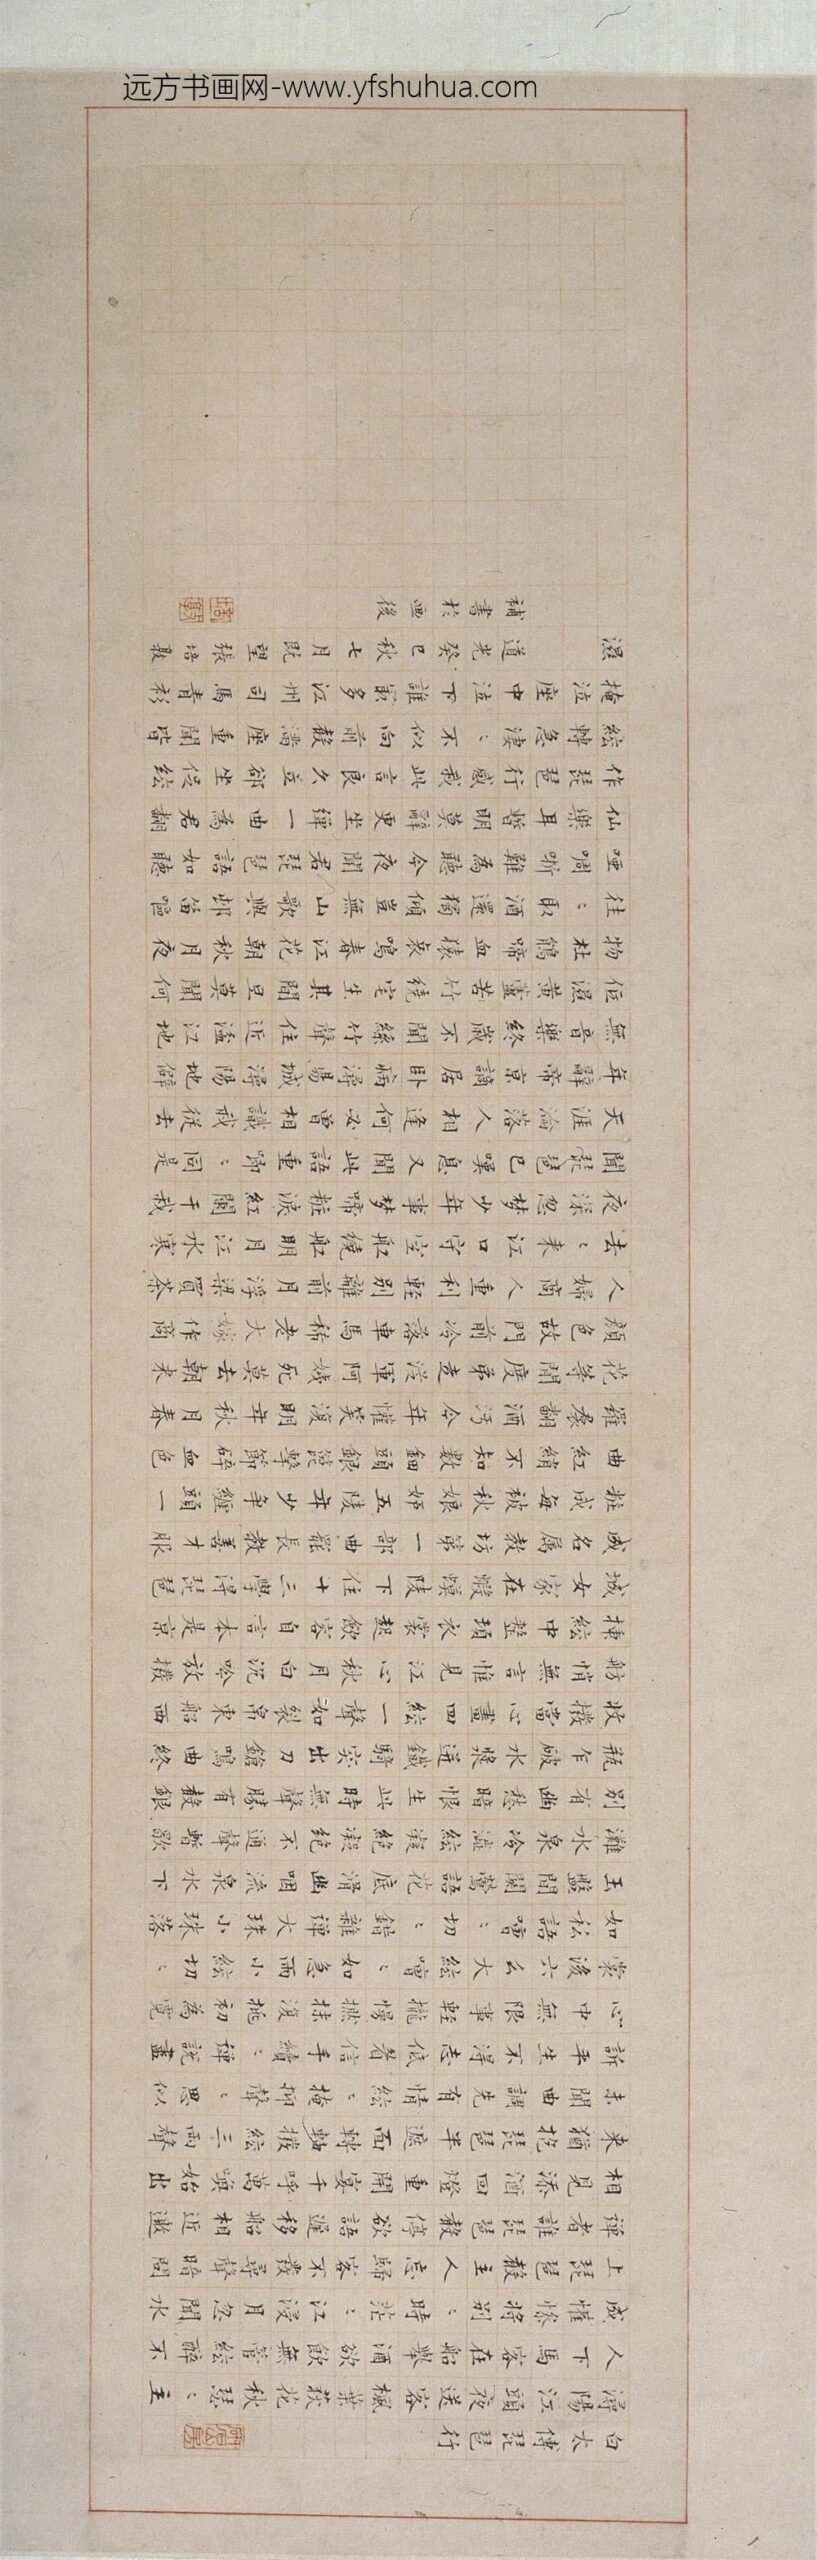 远方书画网-www.yfshuhua.com
白太傅琵琶行
潯陽江頭夜送客楓葉荻花秋瑟：主
人下馬客在船舉酒欲飲無管絃醉不
成懽慘將別：時茫：江浸月忽聞水
上琵琶聲主人忘歸客不發尋聲暗問
彈者誰琵琶聲停欲語遲移船相近邀
相見添酒回燈重開宴千呼萬喚始出
來猶抱琵琶半遮面轉軸撥絃三兩聲
未聞曲調先有情絃：掩抑聲：思似
訴平生不得志低眉信手續：彈說盡
心中無限事輕攏慢撚抹復挑初為霓
裳後六幺大絃嘈：如急雨小絃切：
如私語嘈：切：錯雜彈大珠小珠落
玉盤間關鶯語花底滑幽咽流泉水下
灘水泉冷澁絃凝絕凝絕不通聲暫歇
別有幽愁暗恨生此時無聲勝有聲銀
瓶乍破水漿迸鐵騎突出刀鎗鳴曲終
收撥當心畫四絃一聲如裂帛東船西
舫悄無言惟見江心秋月白沉吟放撥
插絃中整頓衣裳起斂容自言本是京
城女家在蝦蟆陵下住十三學得琵琶
成名屬教坊第一部曲罷長教善才服
粧成每被秋娘妒五陵年少爭纏頭一
曲紅綃不知數鈿頭銀篦擊節碎血色
羅裙翻酒污今年懽笑復明年秋月春
花等閒度弟走從軍阿姨死莫去朝來
顏色故門前冷落車馬稀老大嫁作商
人婦商人重利輕別離前月浮梁買茶
去：來江口守空船繞船明月江水寒
夜深忽夢少年事夢啼粧淚紅闌干我
聞琵琶已嘆息又聞此語重唧：同是
天涯淪落人相逢何必曾相識我從去
年辭帝京謫居臥病潯陽城潯陽地僻
無音樂終歲不聞絲竹聲住近湓江地
低濕黃蘆苦竹繞宅生其間旦暮聞何
物杜鵑啼血猿哀鳴春江花朝秋月夜
往：取酒還獨傾豈無山歌與邨笛嘔
啞嘲哳難為聽今夜聞君琵琶語如聽
仙樂耳暫明莫辭更坐彈一曲為君翻
作琵琶行感我此言良久立卻坐促絃
絃轉急淒：不似向前聲滿座重聞皆
掩泣座中泣下誰最多江州司馬青衫
濕 道光癸巳秋七月既望張培敦
補書於画後